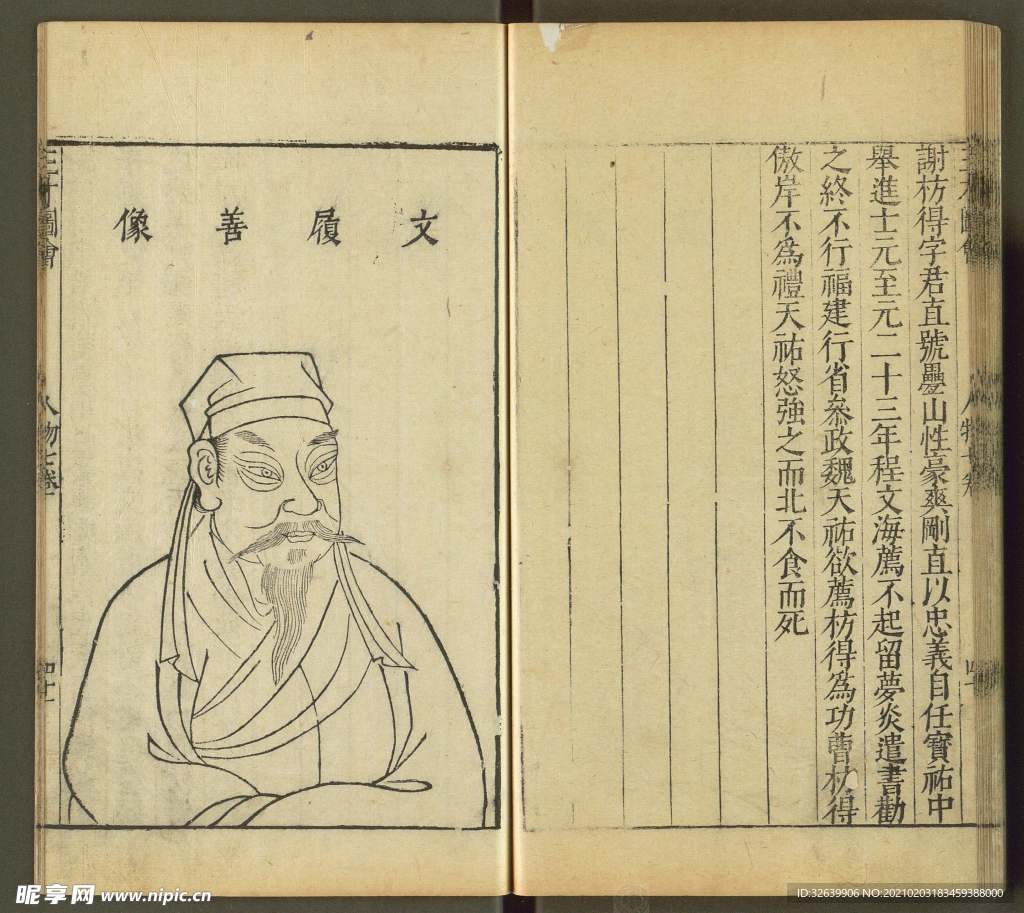 謝枋得字君直號疊山性豪爽剛直以忠義自任寳祐中
舉進士元至元二十三年程文海薦不起留夢炎遣書勸
之終不行福建行省叅政魏天祐欲薦枋得爲功曹枋得
傲岸不爲禮天祐怒強之而北不食而死
文履善像
三才圖會
人物七卷
四十
昵享网 www.nipic.cn
ID:32639906 NO:20210203183459388000